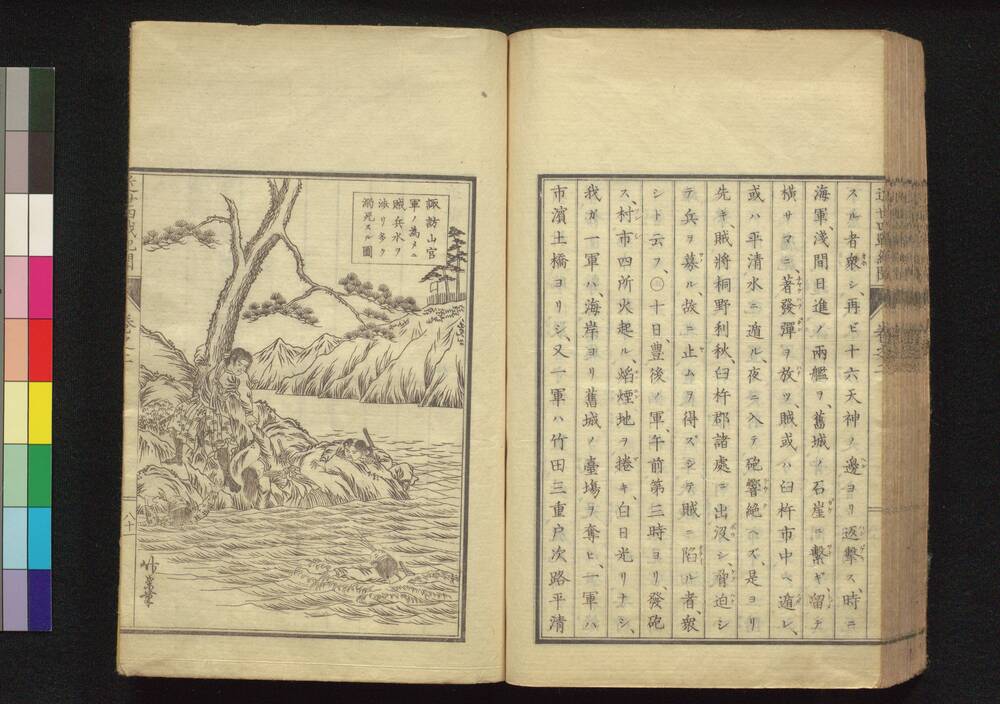 スル者衆シ、再ビ十六天神ノ邊ヨリ返擊ス、時ニ
海軍、淺間日進ノ兩艦ヲ、舊城ノ石崖ニ繫ギ、留テ
橫サマニ、著發彈ヲ放ツ、賊或ハ臼杵市中ヘ遁レ、
或ハ平清水ニ遁ル、夜ニ入テ砲響絕ヘズ、是ヨリ
先キ、賊將桐野利秋、臼杵郡諸處ニ出沒シ、脅迫シ
テ兵ヲ募ル、故ニ止ムヲ得ズシテ賊ニ陷ル者、衆
シト云フ、○十日、豊後ノ軍、午前第三時ヨリ發砲
ス、村市四所火起ル、焰煙地ヲ捲キ、白日光リナシ、
我ガ一軍ハ、海岸ヨリ舊城ノ臺塲ヲ奪ヒ、一軍ハ
市濱土橋ヨリシ、又一軍ハ竹田三重戸次路平清
諏訪山官
軍ノ為メニ
賊兵水ヲ
泳リ多ク
溺死スル圖
八十